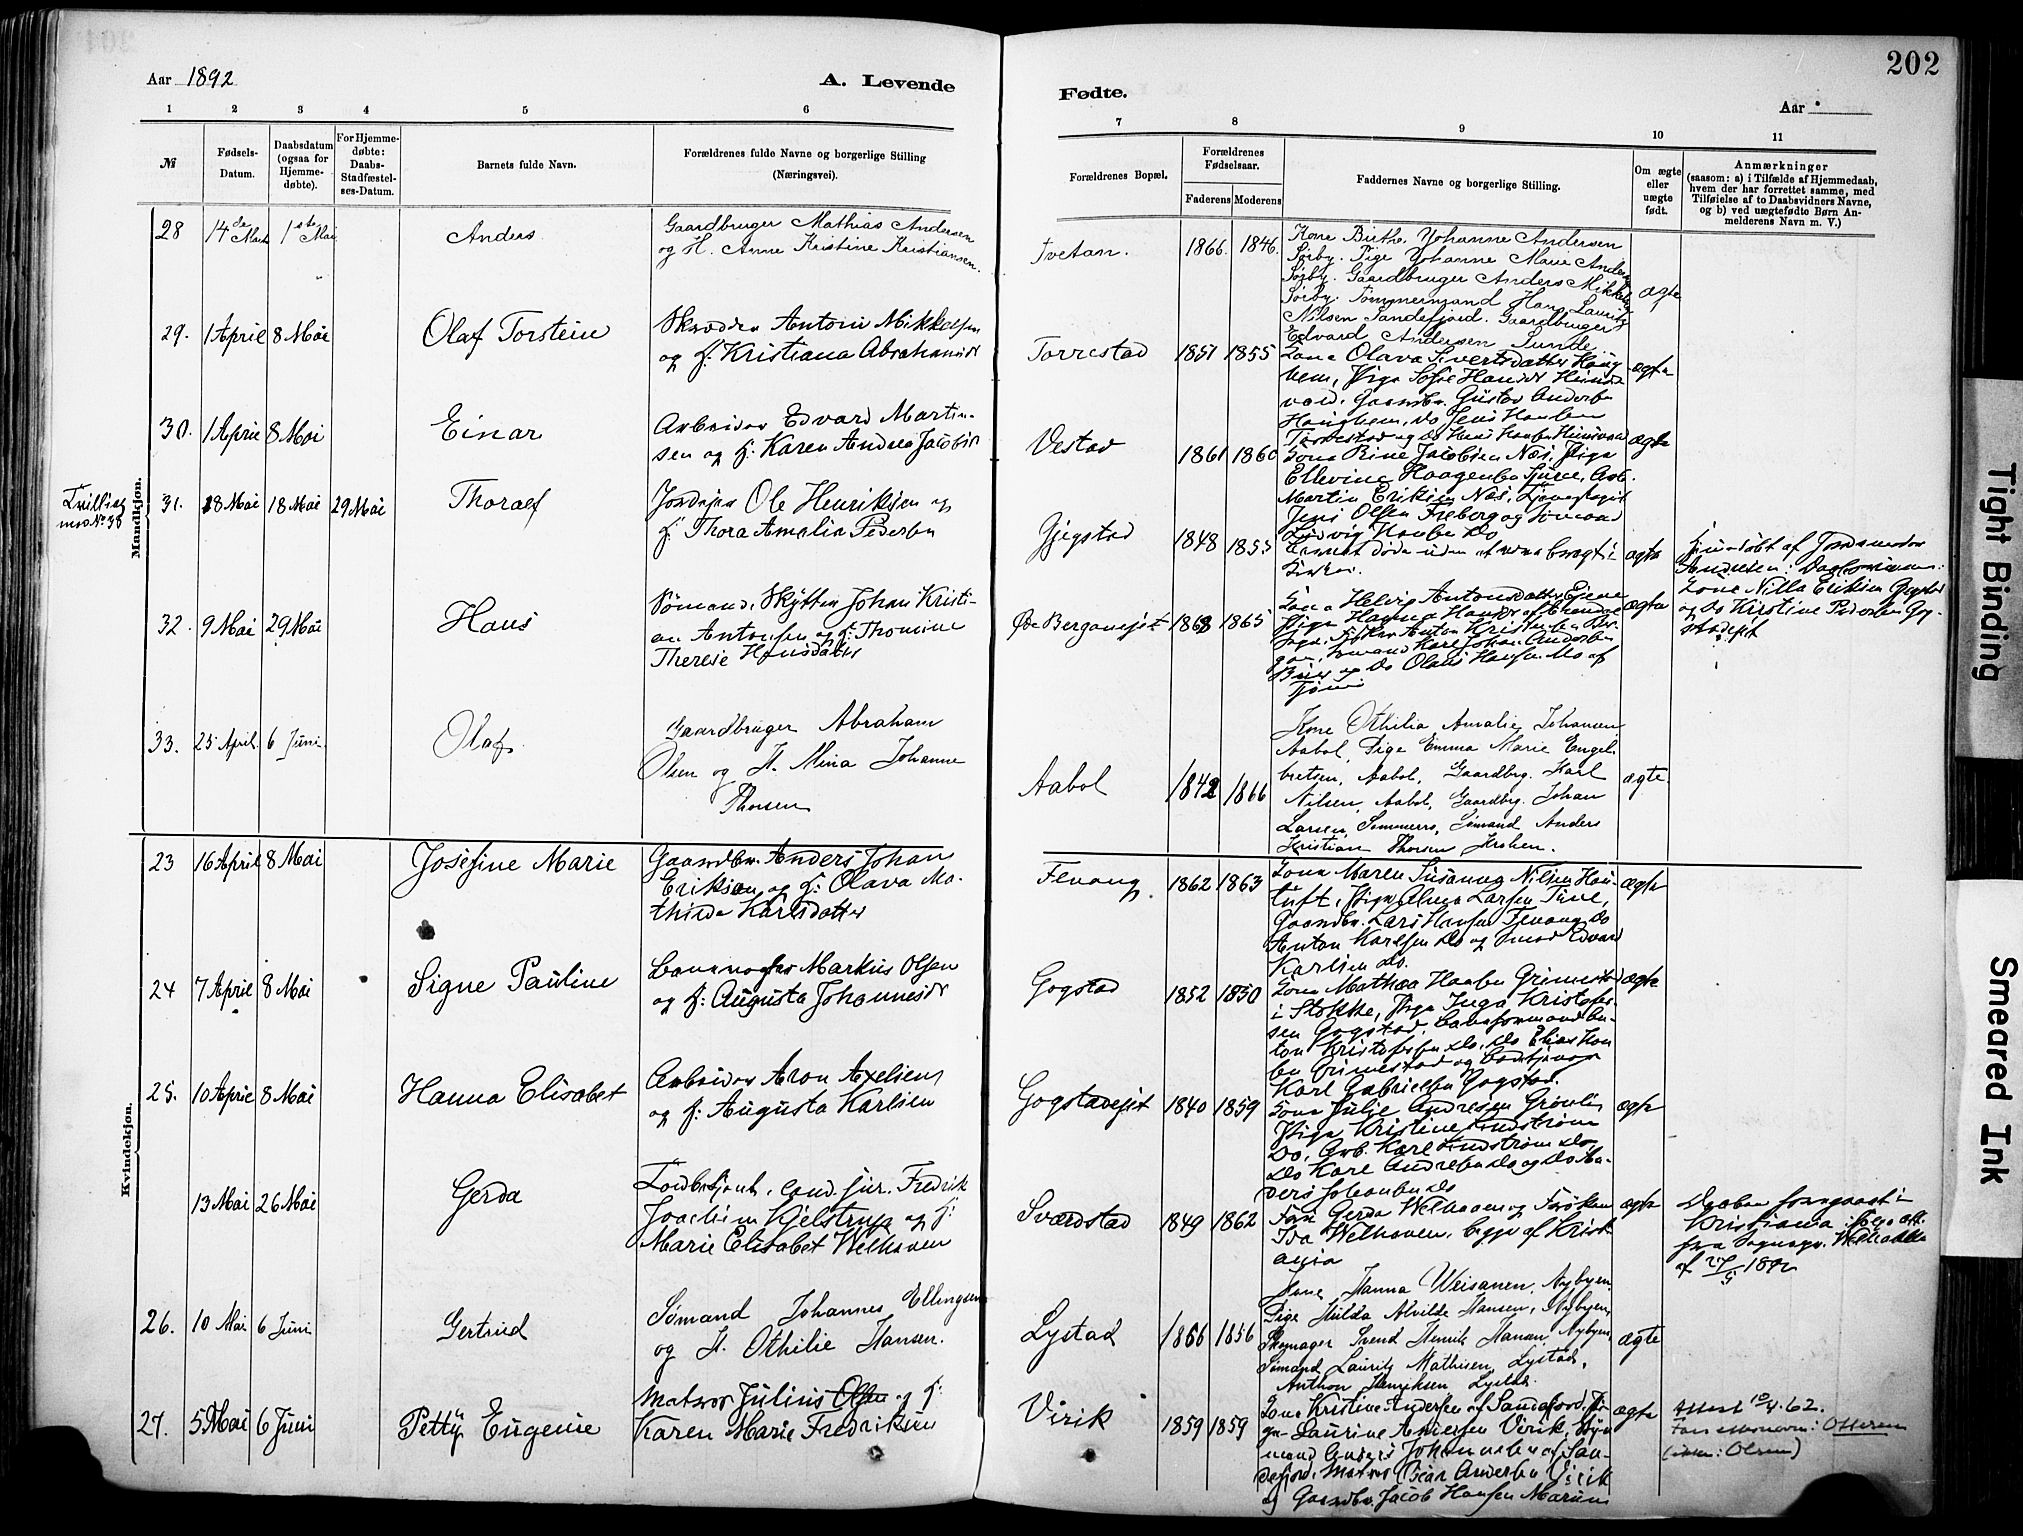 202
Aar 1892
A. Levende
Fødte.
Aar
1 2 3 4 5 6
7 8 9 10 11
№
Fødsels-Datum.
Daabsdatum (ogsaa for Hjemme-døbte).
For Hjemme-døbte: Daabs-Stadfæstel-ses-Datum.
Barnets fulde Navn.
Forældrenes fulde Navne og borgerlige Stilling
(Næringsvei).
Forældrenes Bopæl.
Forældrenes Fødselsaar.
Faderens Moderens
Faddernes Navne og borgerlige Stilling.
Om ægte eller uægte født.
Anmærkninger
(saasom: a) i Tilfælde af Hjemmedaab,
hvem der har forrettet samme, med
Tilføielse af to Daabsvidners Navne,
og b) ved uægtefødte Børn An-
melderens Navn m. V.)
Mandkjøn.
28 14de Marts 1ste Mai Anders
Gaardbruger Mathias Andersen
og H. Anne Kristine Kristiansen.
Tvetan. 1866. 1846.
Kone Birthe Johanne Andersen
Sørby. Pige Johanne Marie Anders
Sørby. Gaardbruger Anders Mikkels
Sørby. Tømmermand Hans Lauritz
Nilsen Sandefjord. Gaardbruger
Edvard Andersen Lunde
ægte
29. 1 April 8 Mai Olaf Torstein
Skrædder Anton Mikkelsen
og H: Kristiana Abrahamsdr
Torrestad 1851 1855
Kona Olava Sivertsdatter Haug
hem, Pige Sofie Hansdr
Gaardbr. Gustav Andersen
Haughem, Do Jens Hansen
ægte
30. 1 April 8 Mai Einar
Arbeider Edvard Martin-
sen og H: Karen Andrea Jacobsdr
Vestad 1861 1860
Kona Rine Jacobsen Næs, Pige
Ellevine Haagensen
Martin Eriksen Næs,
Jens Olsen Freberg og Sømand
Ludvig Hansen Do
ægte
Tvilling
med No 38
31. 18 Mai 18 Mai 29 Mai Thoralf
Jordeier Ole Henriksen og
H: Thora Amalia Pedersen
Gjegstad 1848 1855
Barnet døde uden at være bragt i
Kirken.
ægte
Hjemdøbt af Jordemoder
Kone Nilla Eriksen
og Do Kirstine Pedersen Gog-
stadejet
32. 9 Mai 29 Mai Hans
Sømand, Skytter Johan Kristi-
an Antonsen og H: Thomine
Therese Hansdatter
Bergansejet 1868 1865
Kona Helvig Antonsdatter
Pige Hanna Hansdr
Fisker Anton Kristensen Ber-
gan, Sømand Karl Johan Andersen
og Do Olaus Hansen Mo af
Tjømø
ægte
33. 25 April. 6 Juni. Olaf.
Gaardbruger Abraham
Olsen og H. Mina Johanne
Thorsen
Aabol 1842 1866
Kone Othilia Amalie Johansen
Aabol, Pige Emma Marie Engel-
bretsen, Aabol, Gaardbrg. Karl
Nilsen, Aabol, Gaardbrg. Johan
Larsen, Sommerrs, Sømand Anders
Kristian Thorsen
ægte.
Kvindekjøn.
23 16 April 8 Mai Josefine Marie
Gaardbr. Anders Johan
Eriksen og H: Olava Ma-
thilda Karlsdatter
Fevang 1862 1863
Kona Maren Susanna Nilsen Hau-
tuft, Pige Alma Larsen
Gaardbr. Lars Hansen Fevang Do
Anton Karlsen Do og Edvard
Karlsen Do.
ægte
24 7 April 8 Mai Signe Pauline
Banevogter Markus Olsen
og H: Augusta Johannesdr
Gogstad 1852 1850
Kona Mathea Hansen Grimestad
i Stokke, Pige Inga Kristofer-
sen Gogstad, Baneformand An-
ton Kristofersen Do, Do Elias Han-
sen Grimestad og
Karl Gabrielsen Gogstad.
ægte
25. 10 April 8 Mai Hanna Elisabet
Arbeider Aron Axelsen
og H: Augusta Karlsen
Gogstadejet 1840 1859
Kona Julie Andresen Grønli,
Pige Kristine Lindstrøm
Do, Arb. Karl Lindstrøm Do,
Do Karl Andresen Do og Do An-
ders Johansen Do
ægte
13 Mai 26 Mai Gerda
Toldbetjent, cand. jur. Fredrik
Joachim Kjelstrup og H:
Marie Elisabet Welhaven
Sværdstad 1849 1862
Gerda Welhaven og Frøken
Ida Welhaven, begge af Kristi-
ania
ægte
Daaben foregaaet i
Kristiania ifølge att.
fra Sognepr. Welhaven
af 27/5 1892
26. 10 Mai 6 Juni Gertrud
Sømand Johannes Ellingsen
og H. Othilie Hansen.
Lystad 1866 1856
Kone Hanna Weisanen, Nybyen
Pige Hulda Alvilde Hansen, Nybyen,
Skomager Svend Henrik Hansen Nybyen,
Sømand Lauritz Mathisen, Lystad,
Anthon Henriksen Lystad.
ægte
27. 5 Mai 6 Juni Petty Eugenie
Matros Julius Olsen og H:
Karen Marie Fredriksen
Virik 1859 1859
Kona Kristine Andersen af Sandefjord, Pi-
ge Laurine Andersen Virik, Styr-
mand Anders Johannesen af San-
defjord, Matros Andersen Virik
og Gaardbr. Jacob Hansen Marum
ægte
Attest 10/4.62.
Fars etternavn: Ottersen
(ikke: Olsen)
Tight Binding
Smeared Ink